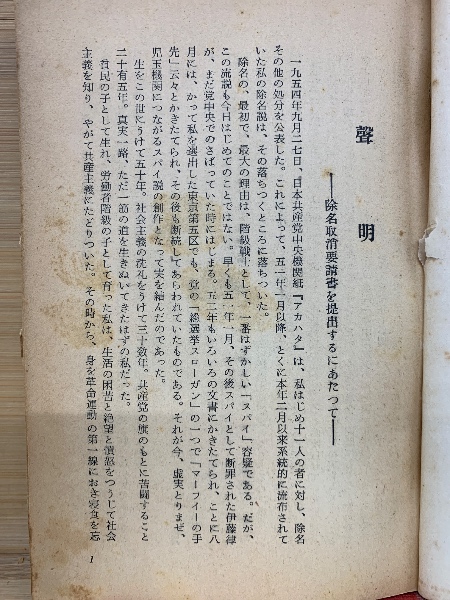 聲明
――除名取消要請書を提出するにあたつて――
一九五四年九月二七日、日本共産党中央機関紙『アカハタ』は、私はじめ十一人の者に対し、除名
その他の処分を公表した。これによつて、五一年一月以降、とくに本年二月以来系統的に流布されて
いた私の除名説は、その落ちつくところに落ちついた。
除名の、最初で、最大の理由は、階級戦士として、一番はずかしい「スパイ」容疑である。だが、
この流説も今日はじめてのことではない。早くも五一年一月、その後スパイとして断罪された伊藤律
が、まだ党中央でのさばつていた時にはじまる。五二年もいろいろの文書にかきたてられ、ことに八
月には、かつて私を選出した東京第五区でも、党の「総選挙スローガン」の一つで「マーフイーの手
先」云々とかきたてられ、その後も断続してあらわれていたものである。それが今、虚実とりまぜ、
児玉機関につながるスパイ説の創作となつて実を結んだのであつた。
生をこの世にうけて五十年。社会主義の洗礼をうけて三十数年。共産党の旗のもとに苦闘すること
二十有五年。真実一路、ただ一筋の道を生きぬいてきたはずの私だつた。
貧民の子として生れ、労働者階級の子として育つた私は、生活の困苦と絶望と憤怒をつうじて社会
主義を知り、やがて共産主義にたどりついた。その時から、身を革命運動の第一線におき寝食を忘
1